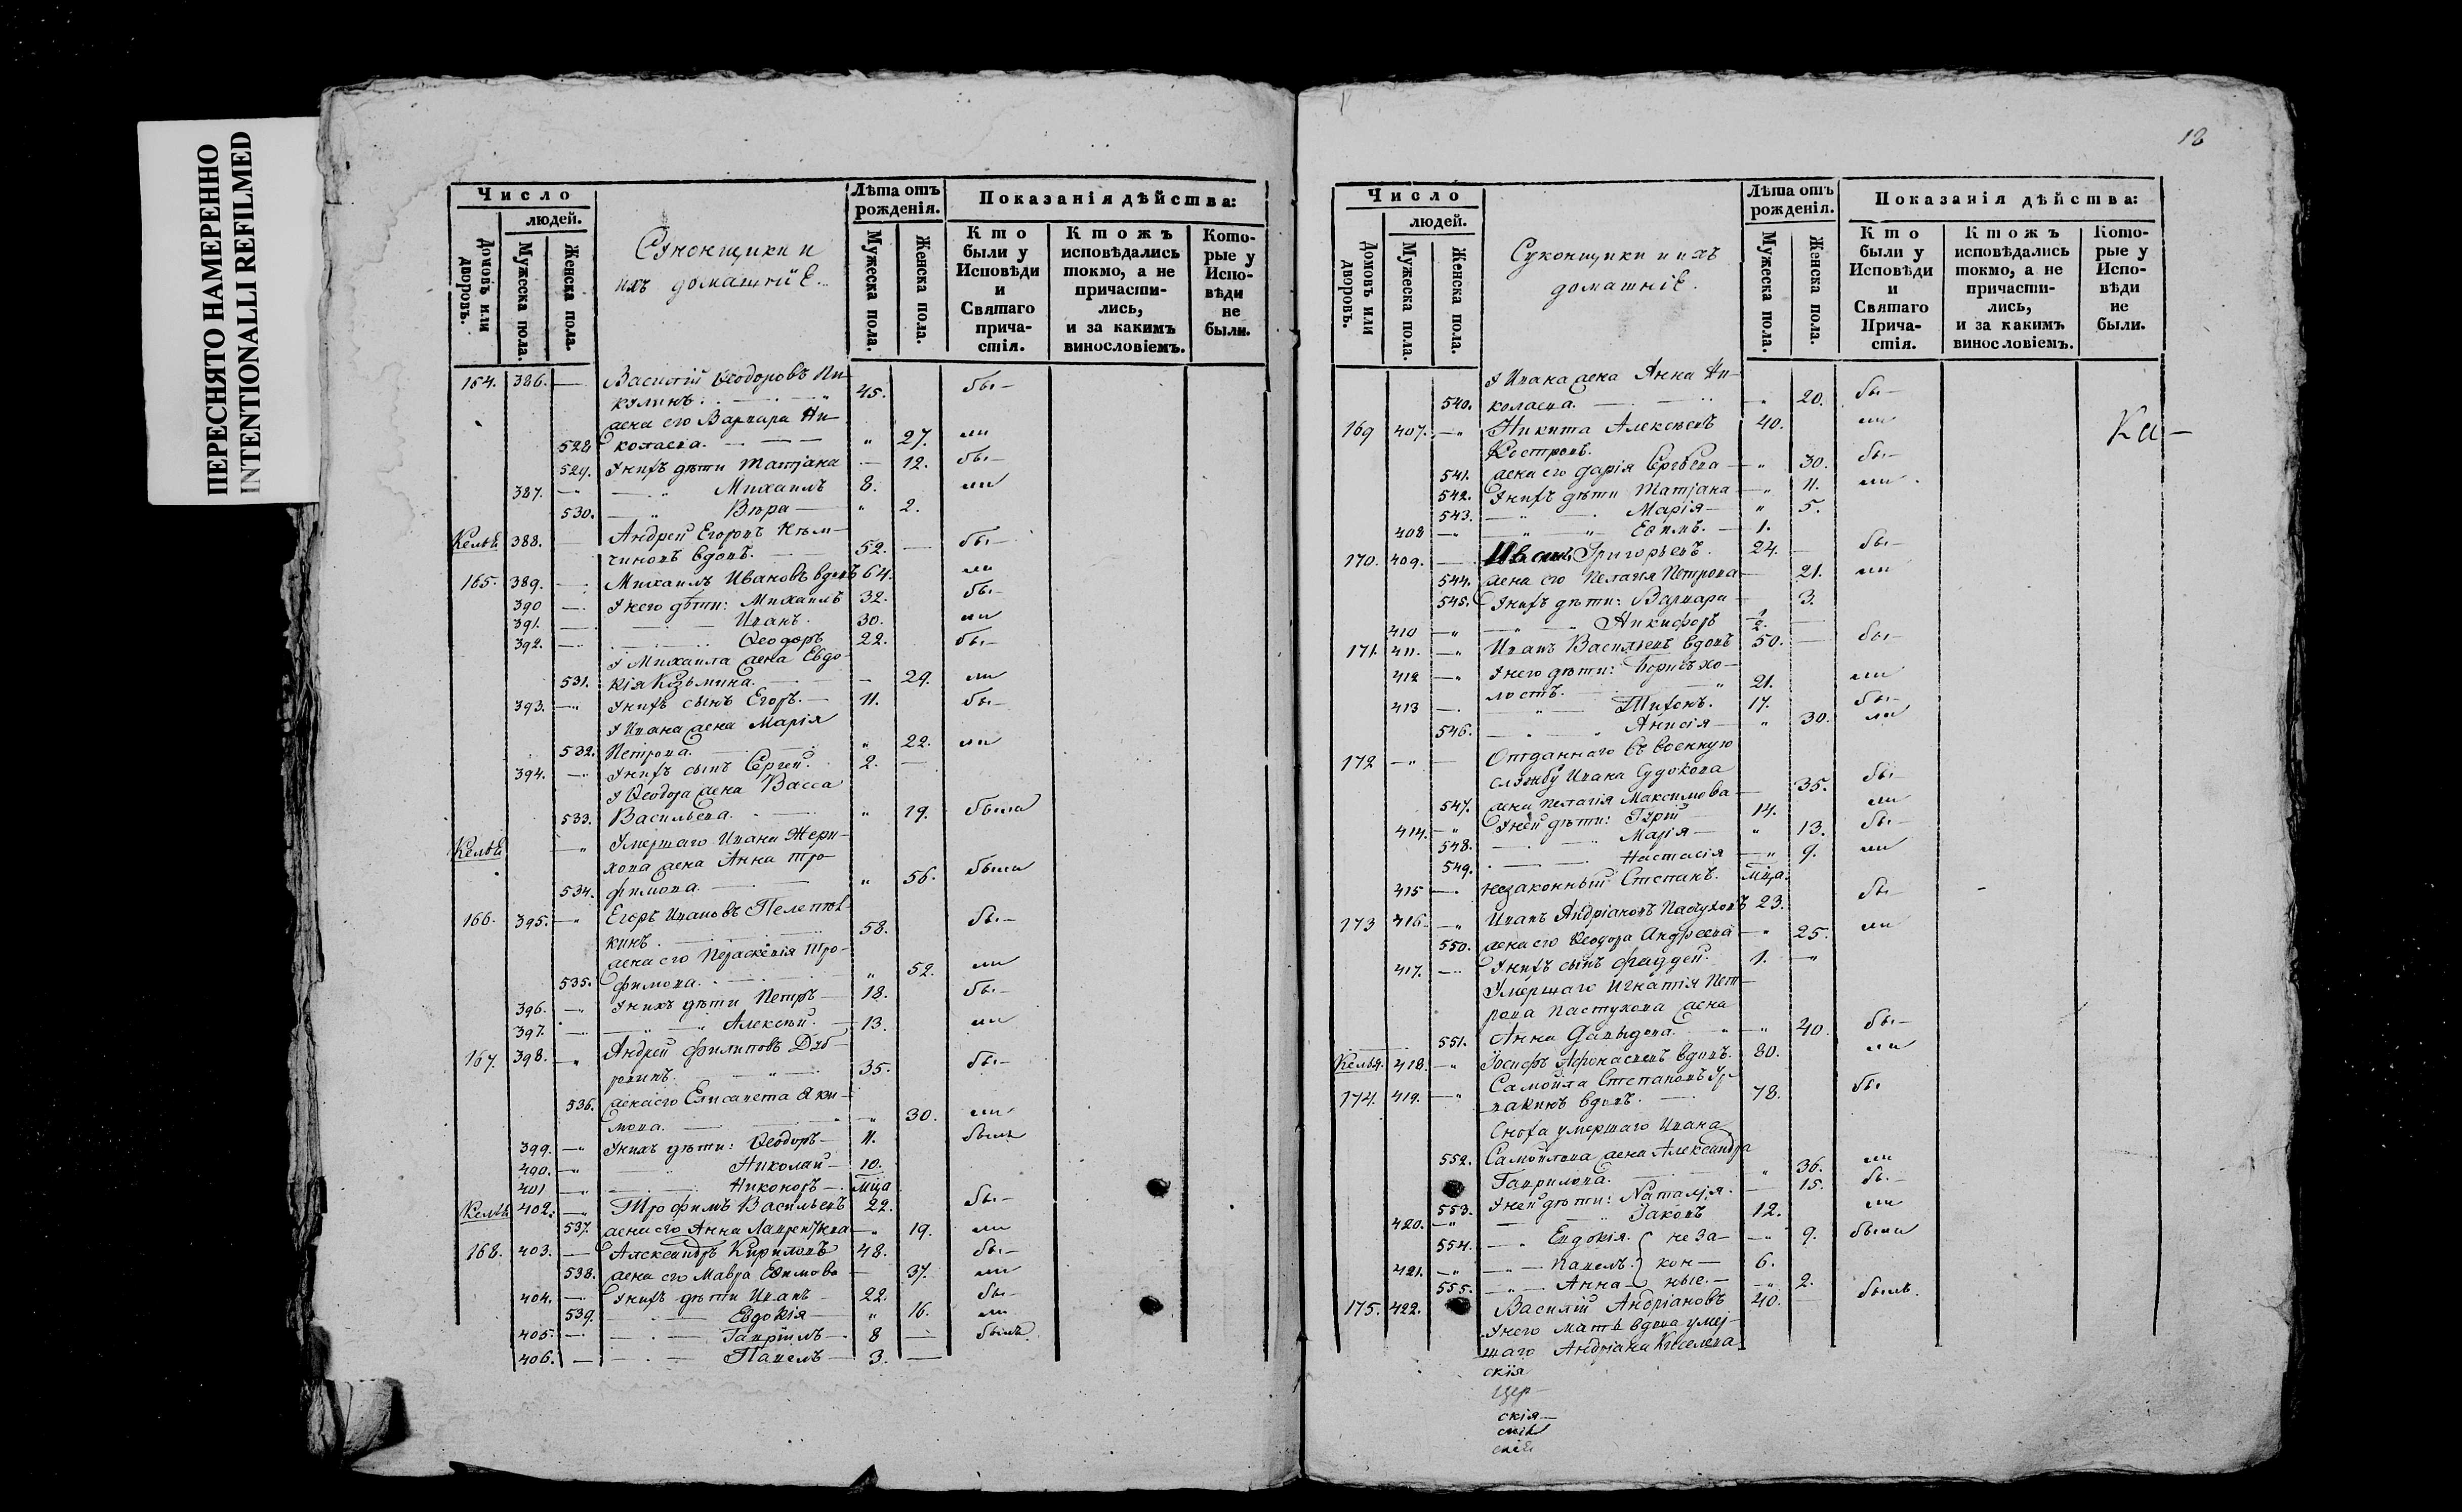 ПЕРЕСНЯТО НАМЕРЕННО
INTENTIONALLI REFILMED
Число
людей.
Домовъ или дворовъ.
Мужеска пола.
Женска пола.
Суконщики и
ихъ домашнiе.
Лѣта отъ рожденiя.
Мужеска пола.
Женска пола.
Показанiя дѣйства:
Кто были у Исповѣди и Святаго прича-стiя.
Ктожъ исповѣдались токмо, а не причасти-лись, и за какимъ винословiемъ.
Кото-рые у Испо-вѣди не были.
164. 386. — Василiй Ѳеодоровъ Ни-
кулинъ. 45. бы—
жена его Варвара Ни-
528 колаева. — — — „ 27. ли
529. У нихъ дѣти Татiана — 12. бы—
387. —„ —„ Михаилъ 8. ли
530. —„ Вѣра — „ 2.
Келья 388. — Андрей Егоровъ Нѣм-
чиновъ вдовъ. — 52. — бы—
165. 389. — Михаилъ Ивановъ вдовъ 64. ли
390 — У него дѣти: Михаилъ 32. бы—
391. — — Иванъ. 30. ли
392. — Ѳеодоръ 22. бы—
У Михаила жена Евдо-
531. кiя Козьмина. — — 29. ли
393. —„ У нихъ сынъ Егоръ. — 11. бы—
У Ивана жена Марiя
532. Петрова. — „ 22. ли
394. —„ У нихъ сынъ Сергей. 2. —
У Ѳеодора жена Васса
533. Васильева. — „ 19. была
Келья —„ Умершаго Ивана
жена Анна Тро-
534. фимова. — „ 56. была
166. 395. —„ Егоръ Ивановъ
кинъ. — 58. бы—
жена его Параскевiя Тро-
535. фимова. — „ 52. ли
396. —„ У нихъ дѣти Петръ — 18. бы—
397. — —„ —„ Алексѣй. — 13. ли
167. 398. —„ Андрей Филиповъ Дуб-
ровинъ. —„— 35. бы—
536. жена его Елисавета Яки-
мова. — „ 30. ли
399. —„ У нихъ дѣти: Ѳеодоръ — 11. былъ
400. —„ — Николай — 10.
401 —„ — Никоноръ — Мца
Келья 402. —„ Трофимъ Васильевъ 22. бы—
537. жена его Анна Лаврентiева —„ 19. ли
168. 403. — Александръ Кириловъ 48. бы—
538. жена его Мавра Ефимова — 37. ли
404. — У нихъ дѣти Иванъ — 22. бы—
539. — Евдокiя — „ 16. ли
405. — — Гаврiилъ — 8 — былъ.
406. — — Павелъ — 3. —
18
Число
людей.
Домовъ или дворовъ.
Мужеска пола.
Женска пола.
Суконщики и ихъ
домашнiе.
Лѣта отъ рожденiя.
Мужеска пола.
Женска пола.
Показанiя дѣйства:
Кто были у Исповѣди и Святаго Прича-стiя.
Ктожъ исповѣдались токмо, а не причасти-лись, и за какимъ винословiемъ.
Кото-рые у Испо-вѣди не были.
У Ивана жена Анна Ни-
540. колаева. — — „ 20. бы—
169 407. —„ Никита Алексѣевъ 40. ли
Костровъ.
541. жена его Дарiя Сергѣева — „ 30. бы—
542. У нихъ дѣти Татiана — „ 11. ли
543. — Марiя — „ 5.
408 —„ —„ Ефимъ. — 1.
170. 409. — Иванъ Григорьевъ. 24. — бы—
544. жена его Пелагiя Петрова — 21. ли
545. У нихъ дѣти: Варвара — 3.
410 —„ —„ Никифоръ ½. —
171. 411. —„ Иванъ Васильевъ вдовъ 50. — бы—
412 —„ У него дѣти: Борисъ хо-
лостъ. — 21. ли
413 — —„ Тихонъ. 17. бы—
546. —„ Анисiя — „ 30. ли
172 —„ — Отданнаго въ военную
службу Ивана Судокова
547. жена Пелагiя Максимова — 35. бы—
414. —„ У ней дѣти: Гурiй — 14. ли
548. — —„ Марiя — „ 13. бы—
549. — Настасiя —„ 9. ли
415 — незаконный Степанъ. Мца.
173 416. —„ Иванъ Андрiановъ Пастуховъ 23. бы—
550. жена его Ѳеодора Андреева —„ 25. ли
417. —„ У нихъ сынъ Фаддей. 1. —„
Умершаго Игнатiя Пет-
рова Пастухова жена
551. Анна Давыдова. — „ 40. бы—
Келья. 418. —„ Iосифъ Афонасьевъ вдовъ. 80. ли
174. 419. —„ Самойла Степановъ
вдовъ. — 78. бы
Сноха умершаго Ивана
552. Самойлова жена Александра
Гаврилова. — „ 36. ли
553. У ней дѣти: Наталiя. — 15. бы—
420. —„ — Iаковъ 12. ли
554. —„ Евдокiя. { не за- —„ 9. была
421. —„ —„— Павелъ. } кон— 6.
555. —„— Анна — ные. — —„ 2.
175. 422. Василiй Андрiановъ 40. — былъ.
У него мать вдова умер-
шаго Андрiана Киселева
Ка—
скiя
цер—
скiя—
скiя
скiя